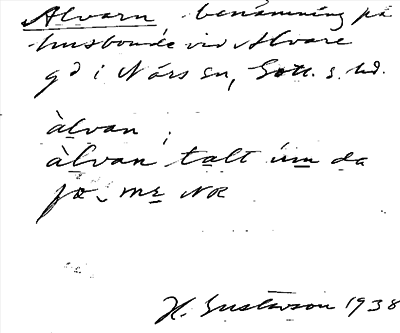 Alvarn benämning på
husbonde vid Alvare
gd i Närs sn, Gotl. s. hd.
àlvan
àlvan talt úm da
jo, 
H. Gustavson 1938